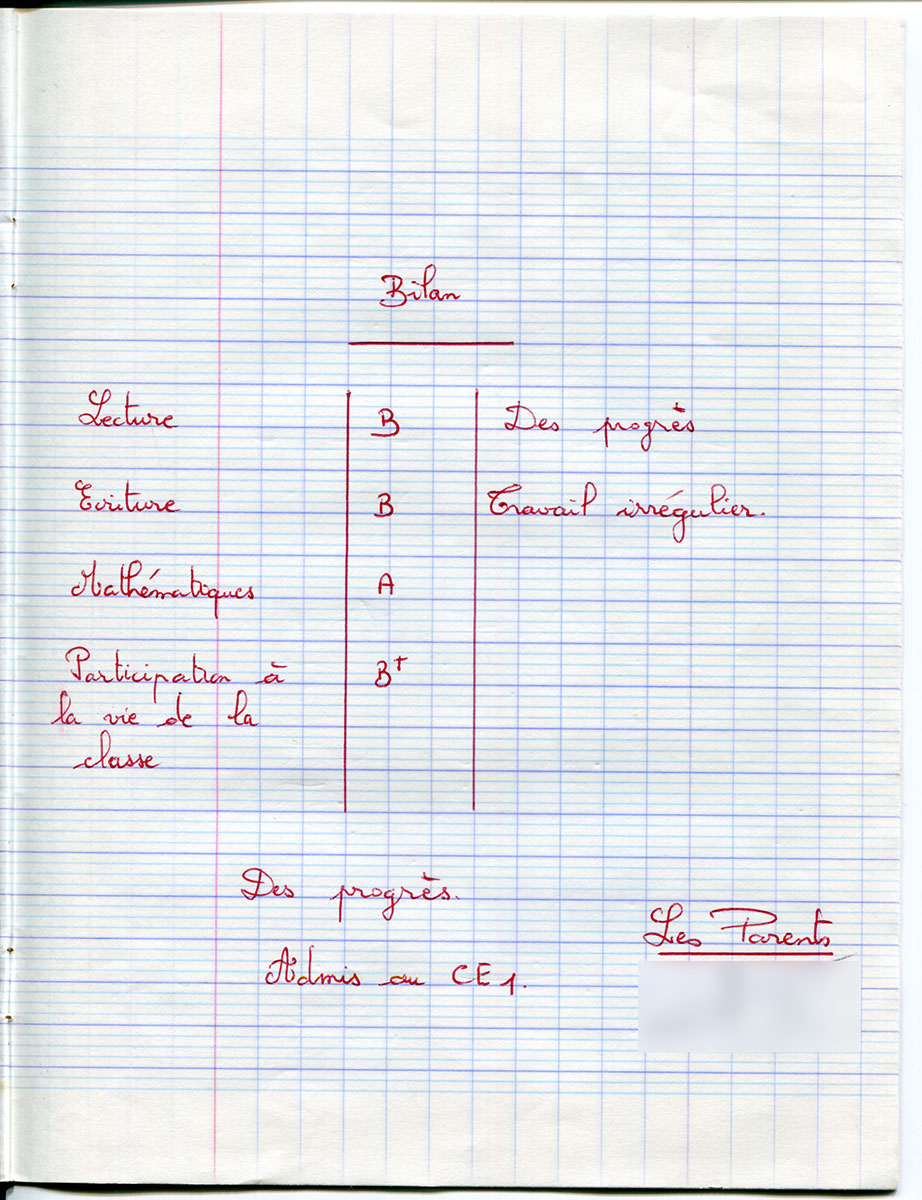 Bilan
Lecture B Des progrès
Ecriture B Travail irrégulier.
Mathématiques A
Participation à B+
la vie de la
classe
Des progrès.
Les Parents
Admis au CE1.